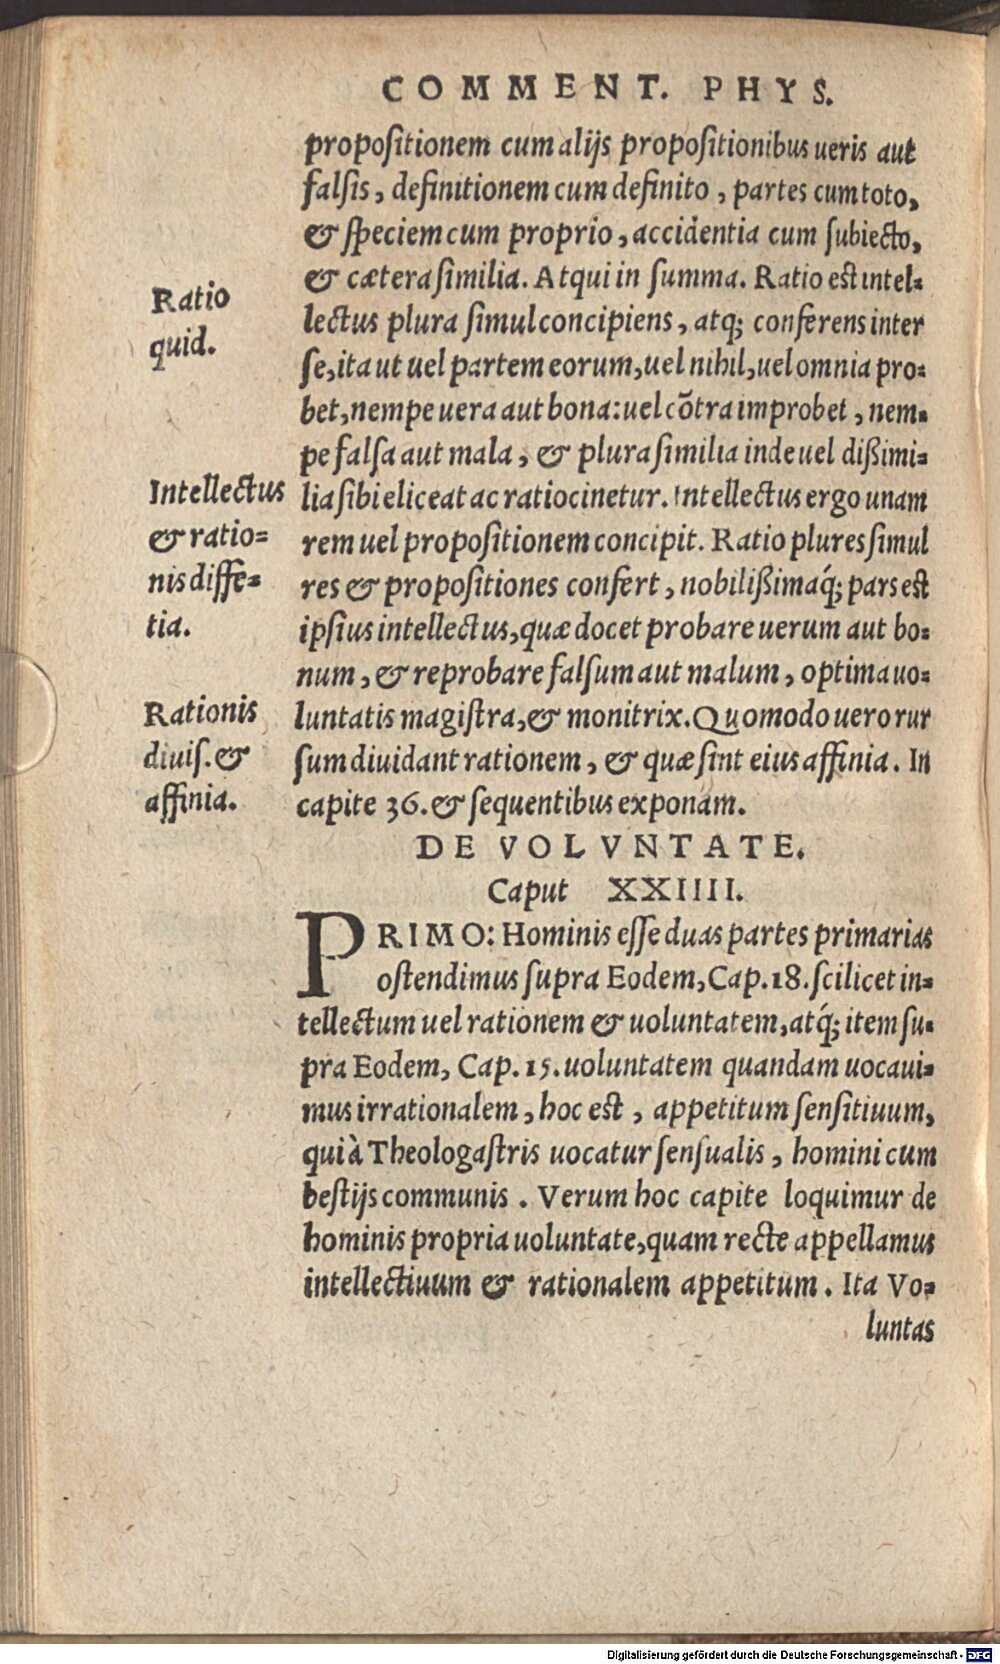 COMMENT. PHYS.
propositionem cum alijs propositionibus ueris aut
falsis, definitionem cum definito, partes cum toto,
& speciem cum proprio, accidentia cum subiecto,
& cætera similia. Atqui in summa. Ratio est intel=
Ratio
quid.
lectus plura simul concipiens, atq; conferens inter
se, ita ut uel partem eorum, uel nihil, uel omnia pro=
bet, nempe uera aut bona: uel cõtra improbet, nem=
pe falsa aut mala, & plura similia inde uel dißimi=
lia sibi eliceat ac ratiocinetur. Intellectus ergo unam
Intellectus
& ratio=
nis diffe=
tia.
rem uel propositionem concipit. Ratio plures simul
res & propositiones confert, nobilißimaq́; pars est
ipsius intellectus, quæ docet probare uerum aut bo=
num, & reprobare falsum aut malum, optima uo=
luntatis magistra, & monitrix. Quomodo uero rur
Rationis
diuis. &
affinia.
sum diuidant rationem, & quæ sint eius affinia. In
capite 36. & sequentibus exponam.
DE VOLVNTATE.
Caput XXIIII.
PRIMO: Hominis esse duas partes primarias
ostendimus supra Eodem, Cap. 18. scilicet in=
tellectum uel rationem & uoluntatem, atq́; item su=
pra Eodem, Cap. 15. uoluntatem quandam uocaui=
mus irrationalem, hoc est, appetitum sensitiuum,
qui à Theologastris uocatur sensualis, homini cum
bestijs communis. Verum hoc capite loquimur de
hominis propria uoluntate, quam recte appellamus
intellectiuum & rationalem appetitum. Ita Vo=
luntas
Digitalisierung gefördert durch die Deutsche Forschungsgemeinschaft - DFG